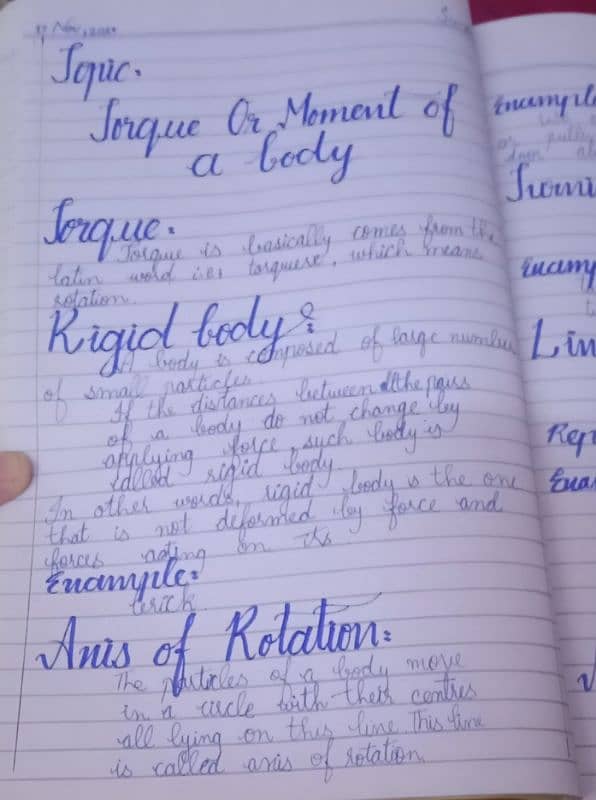 Topic.
Torque Or Moment of
a body
Torque:
Torque is basically comes from the
latin word i.e; torquere, which means
rotation.
Rigid body:
A body is composed of large number
of small particles.
If the distances between all the pairs
of a body do not change by
applying force, such body is
called rigid body.
In other words, rigid body is the one
that is not deformed by force and
forces acting on its
Example:
brick
Axis of Rotation:
The particles of a body move
in a circle with their centres
all lying on this line. This line
is called axis of rotation.
Example
Lin